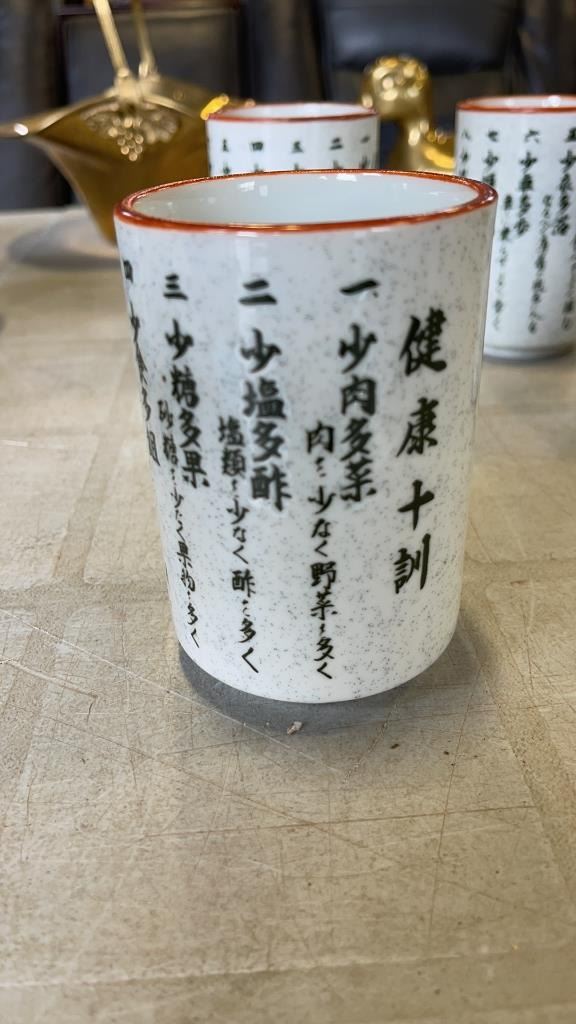 健康十訓
一 少肉多菜
肉を少なく野菜を多く
二 少塩多酢
塩類を少なく酢を多く
三 少糖多果
砂糖を少なく果物を多く
四 少食多
六 少
七 少
二
三
四